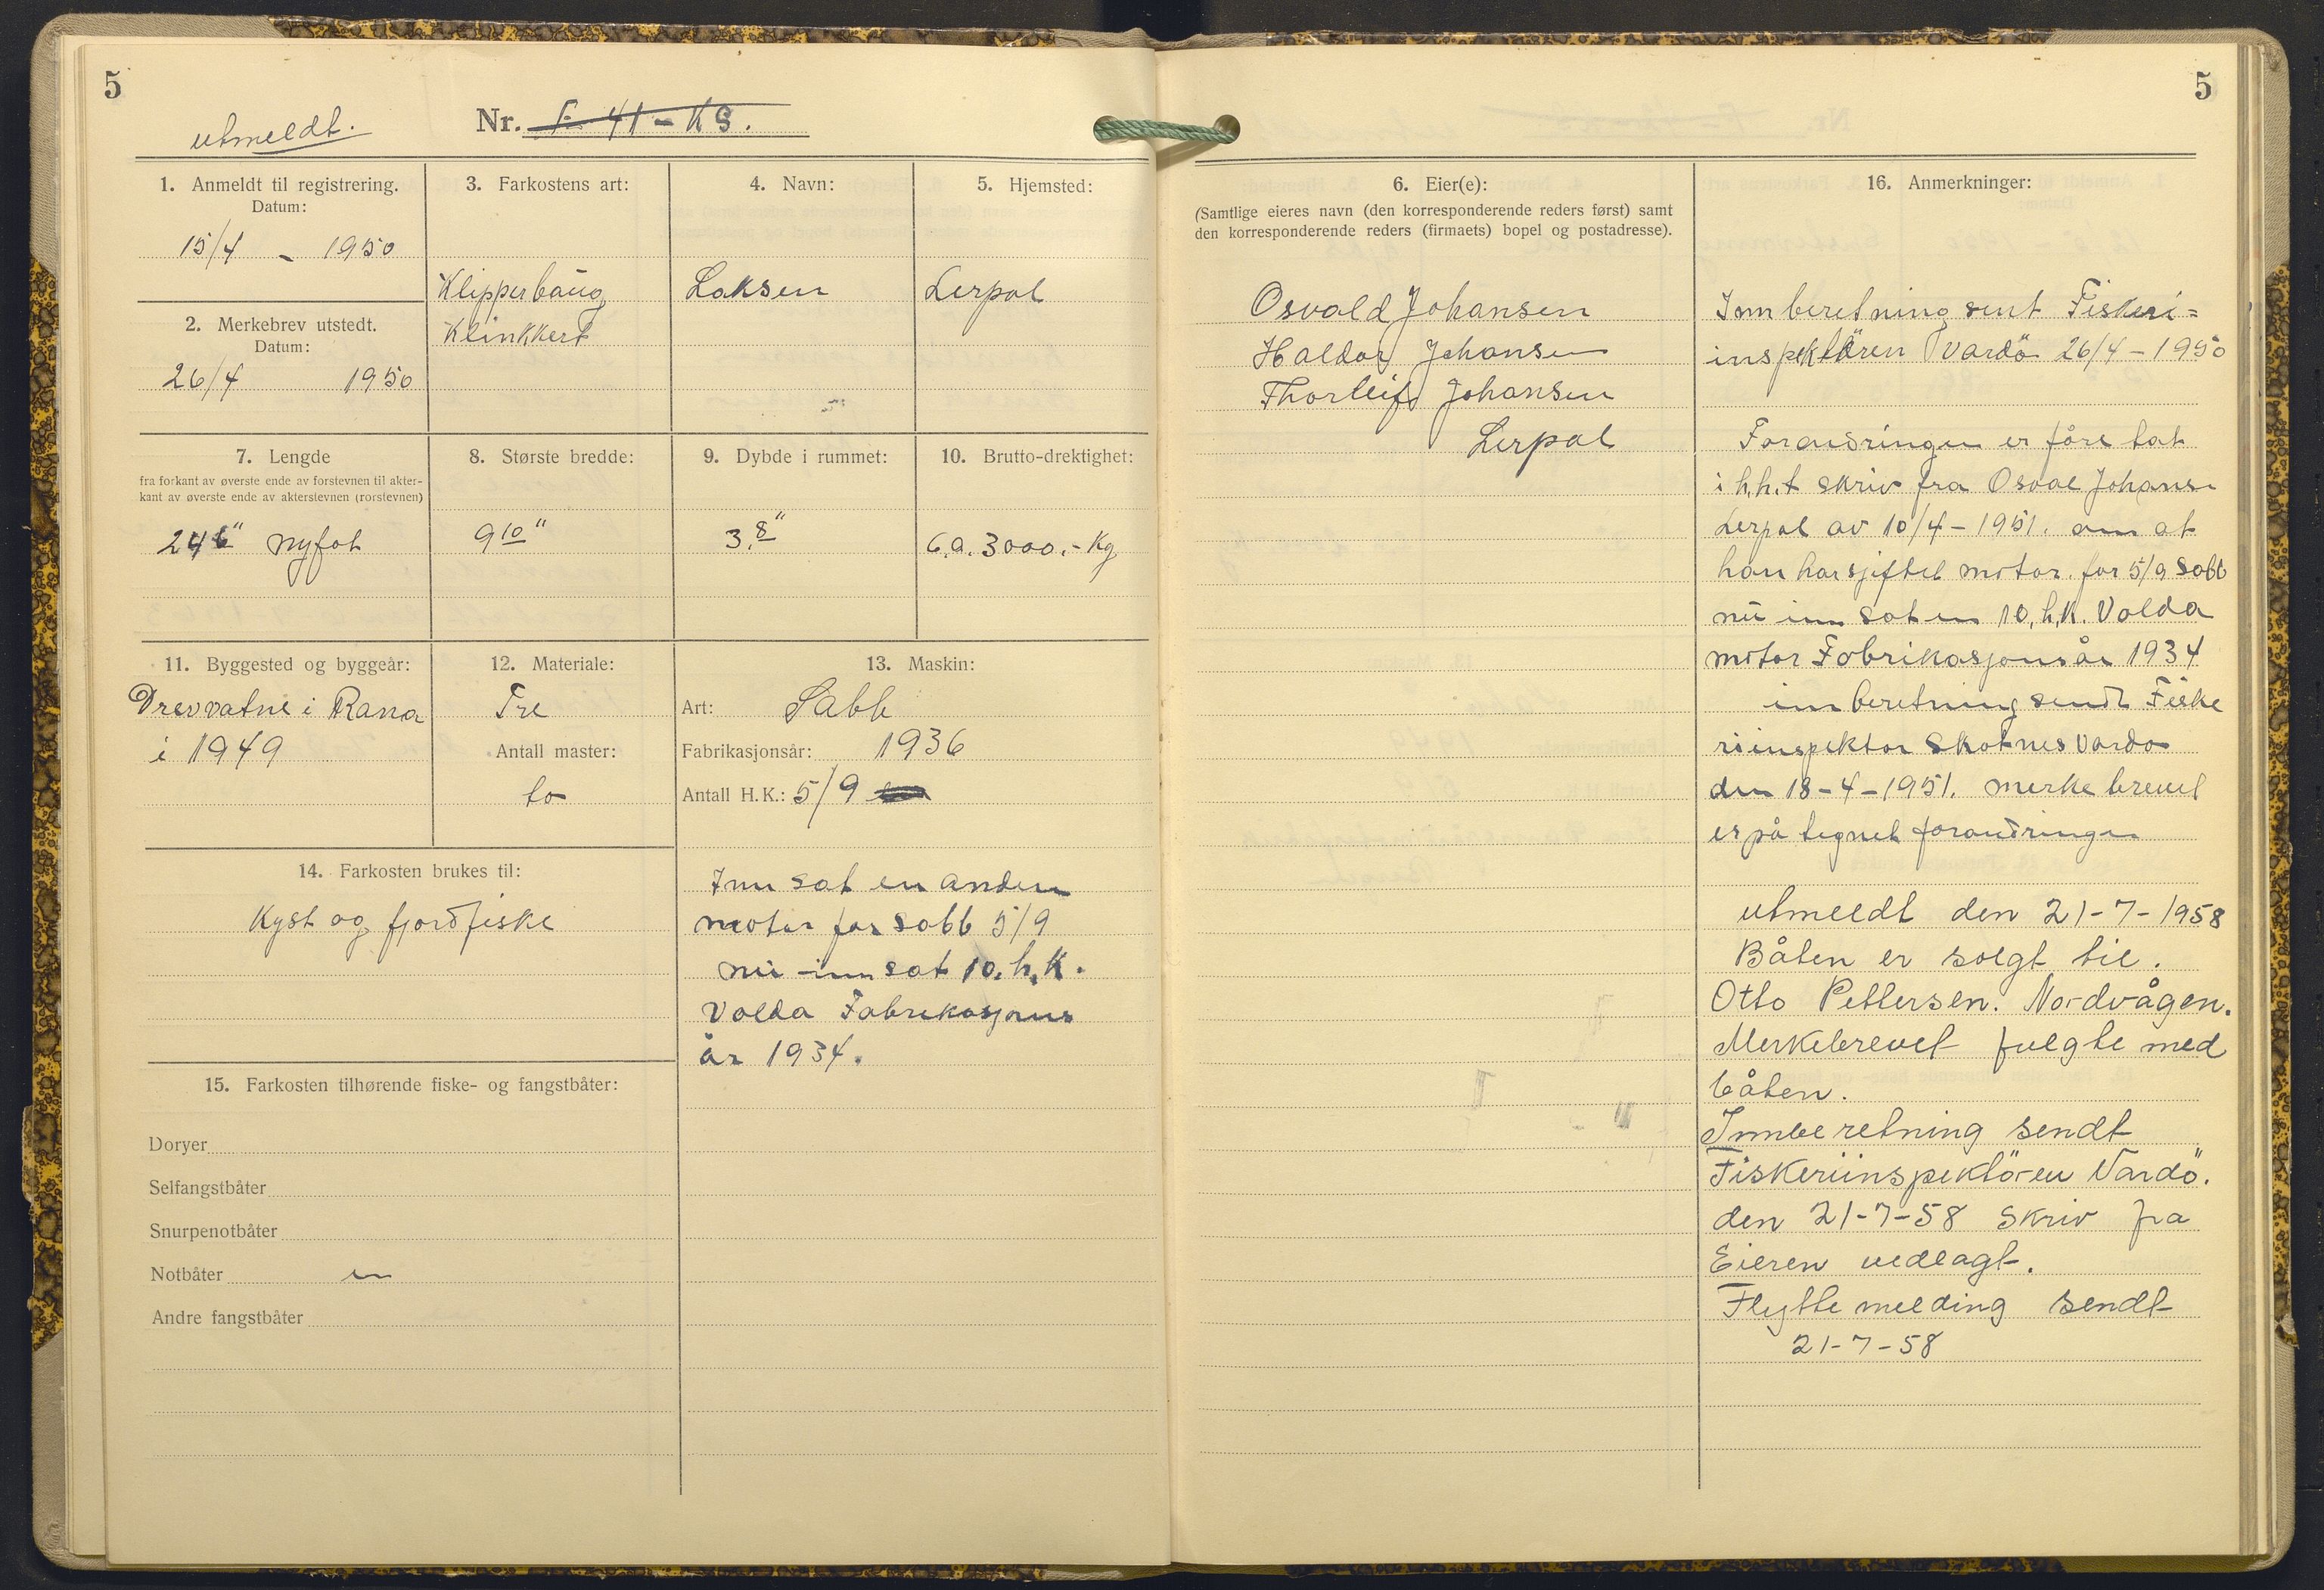 5
utmeldt.
Nr. F 41 - KS.
1. Anmeldt til registrering.
Datum:
15/4 - 1950
2. Merkebrev utstedt.
Datum:
26/4 1950
3. Farkostens art:
Klipperbaug
Klinkkert
4. Navn:
Laksen
5. Hjemsted:
Lerpol
7. Lengde
fra forkant av øverste ende av forstevnen til akter-
kant av øverste ende av akterstevnen (rorstevnen)
24 6" nyfot
8. Største bredde:
9 10"
9. Dybde i rummet:
3.8"
10. Brutto-drektighet:
C.a. 3000.- Kg
11. Byggested og byggeår:
Drevvatne i Rana
i 1949
12. Materiale:
Tre
Antall master:
to
13. Maskin:
Art: Sabb
Fabrikasjonsår: 1936
Antall H.K.: 5/9
Inn sat en anden
motor for Sabb 5/9
nu inn sat 10. h.K.
Volda Fabrikasjons
år 1934.
14. Farkosten brukes til:
Kyst og fjordfiske
15. Farkosten tilhørende fiske- og fangstbåter:
Doryer
Selfangstbåter
Snurpenotbåter
Notbåter en
Andre fangstbåter
5
6. Eier(e):
(Samtlige eieres navn (den korresponderende reders først) samt
den korresponderende reders (firmaets) bopel og postadresse).
Osvald Johansen
Haldor Johansen
Thorleif Johansen
Lerpol
16. Anmerkninger:
Innberetning sent Fiskeri=
inspektören Vardö 26/4 - 1950
Forandringen er före tat
i h.h.t skriv fra Osval Johansen
Lerpol av 10/4 - 1951. om at
han har sjiftet motor. for 5/9 Sabb
nu inn sat en 10. h.K. Volda
motor Fabrikasjonsår 1934
innberetning sendt Fiske
riinspektor Skotnes Vardo
den 18-4-1951. merke brevet
er på tegnet forandringen
utmeldt den 21-7-1958
Båten er solgt til.
Otto Pettersen. Nordvågen.
Merkebrevet fulgte med
båten.
Innberetning sendt
Fiskeriinspektören Vardö.
den 21-7-58 Skriv fra
Eieren vedlagt.
Flytte melding sendt
21-7-58